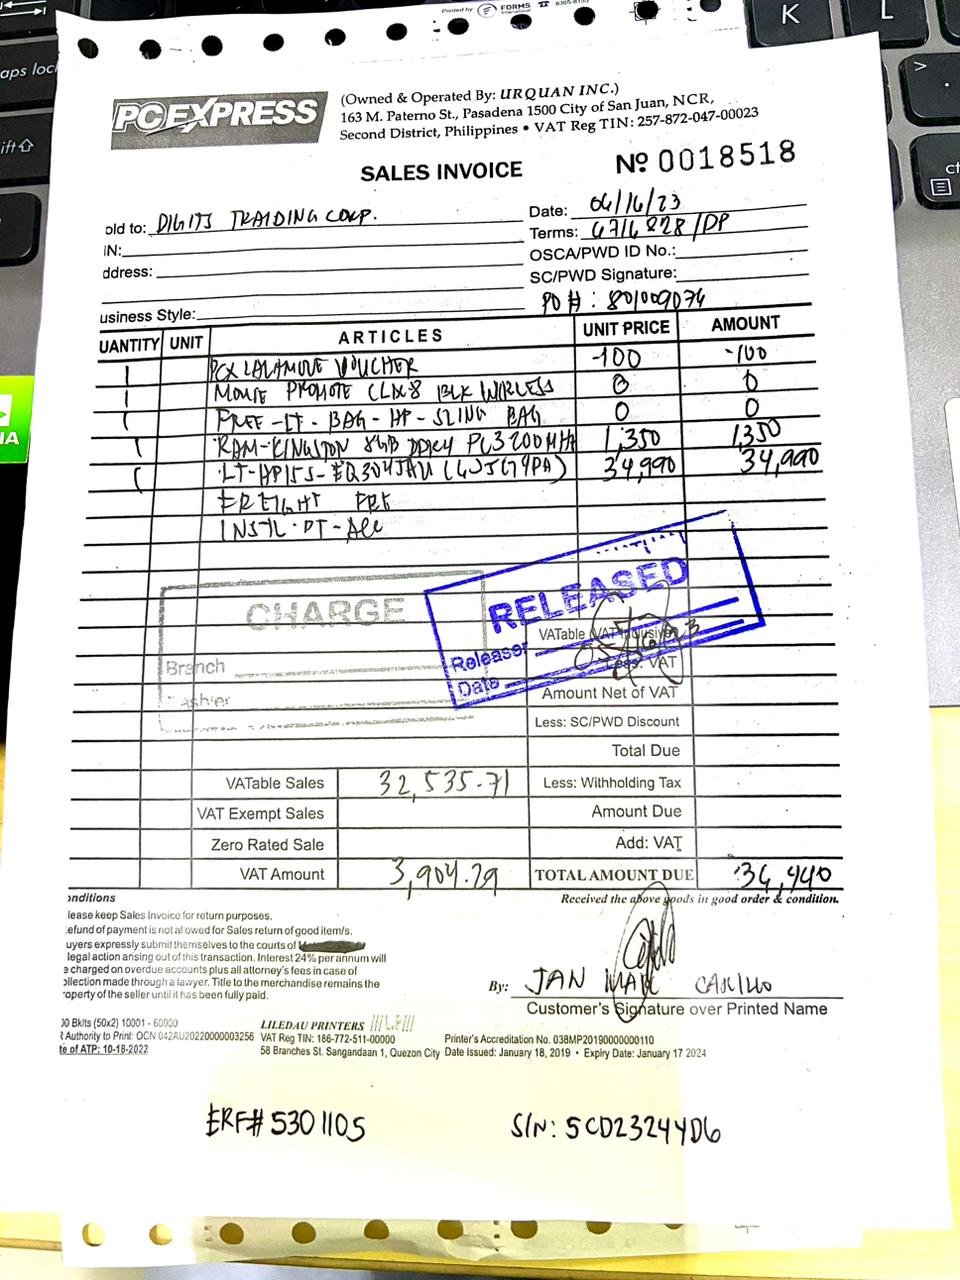 Printed by FORMS
PC EXPRESS
(Owned & Operated By: URQUAN INC.)
163 M. Paterno St., Pasadena 1500 City of San Juan, NCR,
Second District, Philippines • VAT Reg TIN: 257-872-047-00023
SALES INVOICE
Nº 0018518
old to: DIGITS TRAIDING CORP.
Date: 06/16/23
IN:
Terms: 6716828/DP
ddress:
OSCA/PWD ID No.:
SC/PWD Signature:
usiness Style:
PO# : 801009074
UANTITY UNIT ARTICLES UNIT PRICE AMOUNT
1 PCX LALAMOVE VOUCHER -100 -100
1 MOUSE PROMOTE CLIX8 BLK WIRELESS 0 0
1 FREE-LT-BAG-HP-SLING BAG 0 0
1 RAM-KINGSTON 8GB DDR4 PC3200MHz 1,350 1,350
1 LT-HP15S- 34,990 34,990
FREIGHT FRE
INSTL-DT-ACC
CHARGE
Branch
ashier
RELEASED
Releaser
Date
VATable (VAT Inclusive)
Less: VAT
Amount Net of VAT
Less: SC/PWD Discount
Total Due
VATable Sales 32,535.71 Less: Withholding Tax
VAT Exempt Sales Amount Due
Zero Rated Sale Add: VAT
VAT Amount 3,904.29 TOTAL AMOUNT DUE 36,440
onditions
Received the above goods in good order & condition.
lease keep Sales Invoice for return purposes.
efund of payment is not allowed for Sales return of good item/s.
uyers expressly submit themselves to the courts of
legal action arising out of this transaction. Interest 24% per annum will
e charged on overdue accounts plus all attorney's fees in case of
ollection made through a lawyer. Title to the merchandise remains the
roperty of the seller until it has been fully paid.
By: JAN MARC CARILLO
Customer's Signature over Printed Name
00 Bklts (50x2) 10001 - 60000
Authority to Print: OCN 042AU20220000003256
te of ATP: 10-18-2022
LILEDAU PRINTERS
VAT Reg TIN: 186-772-511-00000
58 Branches St. Sangandaan 1, Quezon City
Printer's Accreditation No. 038MP20190000000110
Date Issued: January 18, 2019 • Expiry Date: January 17 2024
ERF# 5301105
S/N: 5CD2324YD6
aps loc
ift
K
L
>
ct
IA